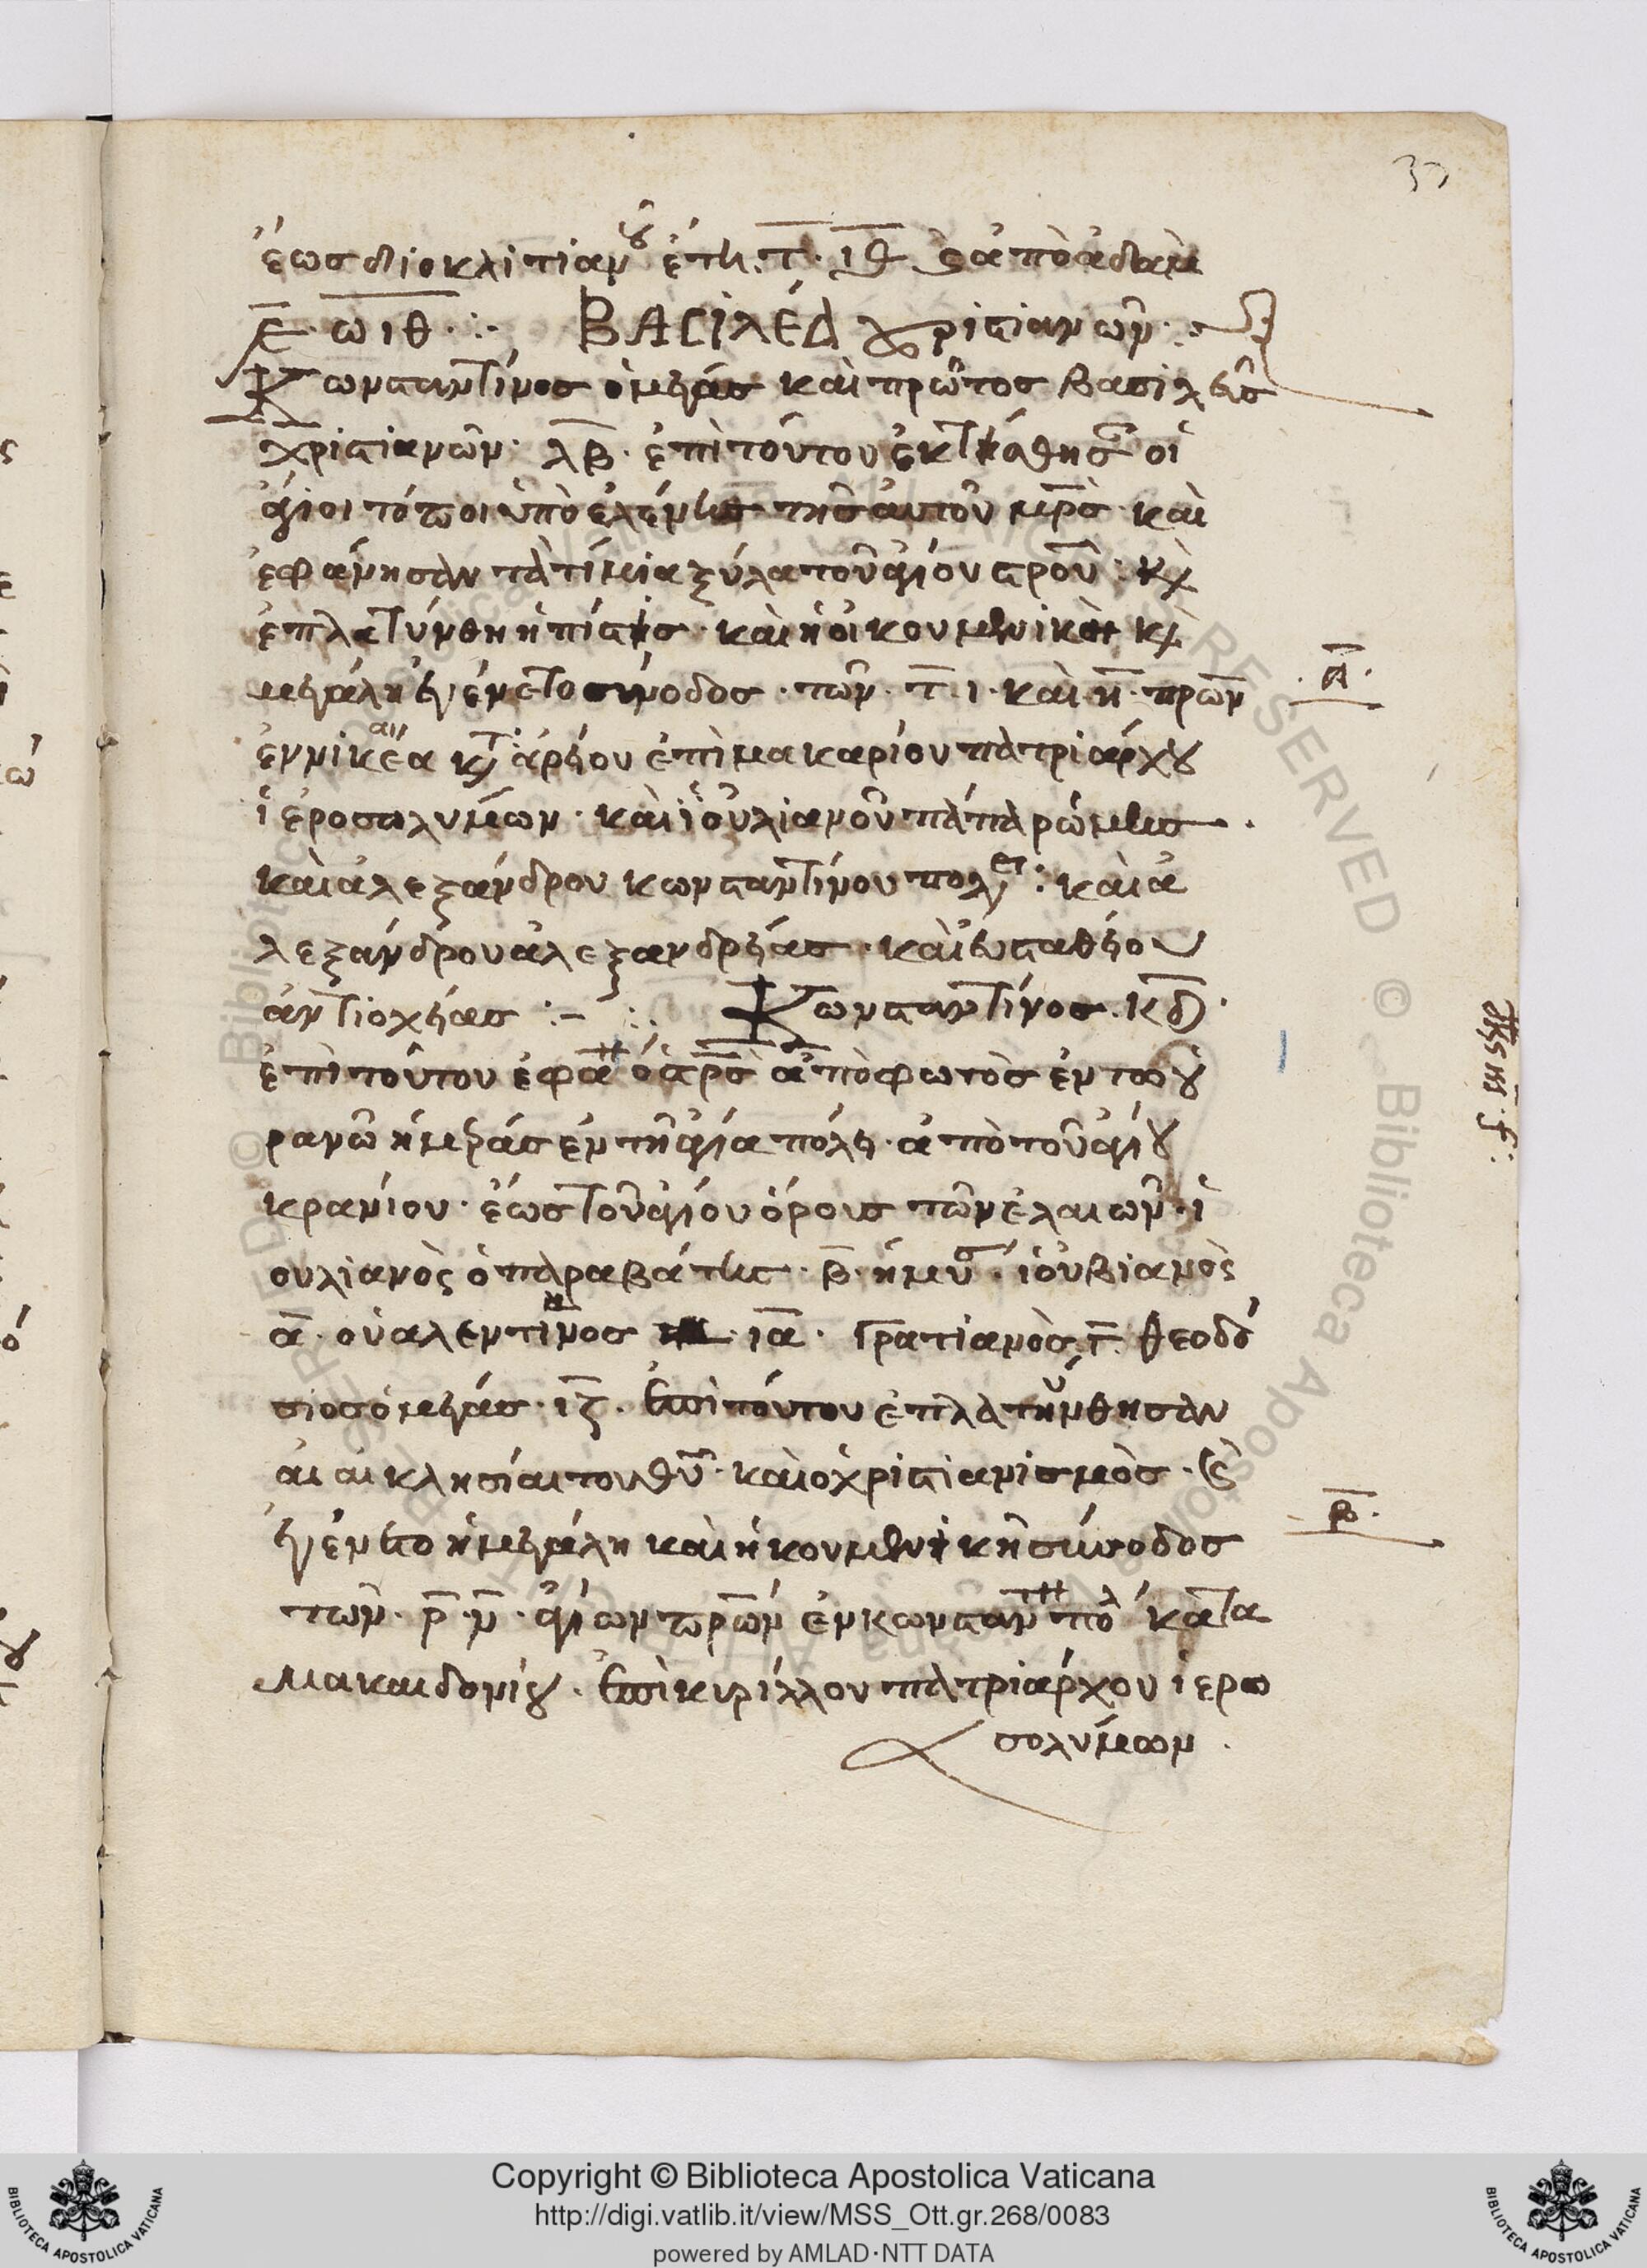 37
ἕως διοκλιτιανοῦ ἔτη. τ. ιθ ϛ ἀπὸ ἀδὰμ
ε. ωιθ. :- ΒΑCΙΛΕΑ χριστιανῶν. :-
Κωνσταντίνος ὁ μέγας καὶ πρῶτος βασιλεὺς
χριστιανῶν. λβ. ἐπὶ τούτου ἐκτίσθησ οἱ
ἅγιοι τόποι ὑπὸ ἑλένης τῆς αὐτοῦ μρς καὶ
ἐφάνησαν τὰ τίμια ξύλα τοῦ ἁγίου στροῦ. κὲ
ἐπλατύνθη ἡ πίστις. καὶ ἡ οἰκουμενικὴ κὲ
μεγάλη ἐγένετο σύνοδος. τῶν. τ. ι. καὶ η. πρῶν
α.
ἐν νικέα κτ ἀρείου ἐπὶ μακαρίου πατριάρχου
ἱεροσολύμων. καὶ ἰουλιανοῦ πάπα ρώμης.
καὶ ἀλεξάνδρου κωνσταντίνου πολ: καὶ ἀ
λεξάνδρου ἀλεξανδρείας. καὶ εὐσταθείου
ἀντιοχείας :- :. Κωνσταντίνος. κδ.
ἐπὶ τούτου ἐφάνη ὁ στρὸς ἀπὸ φωτὸς ἐν τῶ οὐ
ρανῶ ἡμέρας ἐν τῆ ἁγία πόλει. ἀπὸ τοῦ ἁγίου
κρανίου. ἕως τοῦ ἁγίου ὄρους τῶν ἐλαιῶν. ἰ
ουλιανὸς ὁ παραβάτης. β. ἥμυσ. ἰουβιανὸς
α. οὐαλεντῖνος ια. Γρατιανὸς γ. θεοδό
σιος ὁ μέγας. ιζ. ἐπὶ τούτου ἐπλατήνθησαν
αἱ αικλησίαι του θῦ. καὶ ὁ χριστιανισμὸς. κὲ
ἐγένετο ἡ μεγάλη καὶ ἡκουμενικῆ σύνοδος
β.
τῶν. ρ. ν. ἁγίων πρῶν ἐν κωνσταν πὸλ κατὰ
Μακαιδονίου. ἐπὶ κυρίλλου πατριάρχου ἱερο
σολύμων.
Copyright © Biblioteca Apostolica Vaticana
http://digi.vatlib.it/view/MSS_Ott.gr.268/0083
powered by AMLAD·NTT DATA
BIBLIOTECA APOSTOLICA VATICANA
BIBLIOTECA APOSTOLICA VATICANA